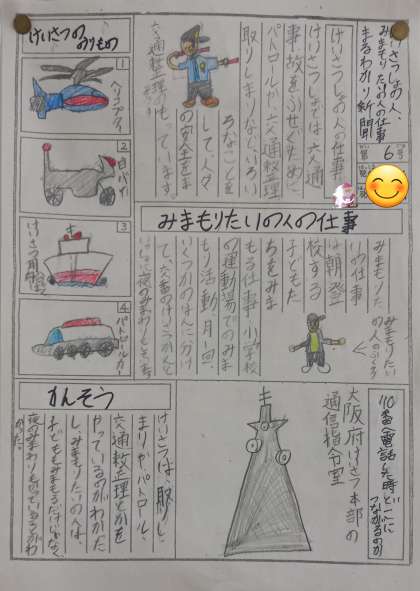 けいさつしょの人、
みまもりたいの人の仕事
まるわかり新聞
第6号
けいさつしょの人の仕事
けいさつしょでは、交通
事故をふせぐために
パトロールや、交通整理、
取りしまりなど、いろい
ろなことを
して人々
の安全をま
もっています。
交通整理の
けいさつのりもの
1
ヘリコプター
2
白バイ
3
けいさつ用船
4
パトロールカー
みまもりたいの人の仕事
みまもりた
いの仕事
は、朝、登
校する
子どもた
ちをみま
もる仕事、小学校
の運動場でのみま
もり活動、月一回、
いくつかのはんに分け
て、交番のけいさつかんと
いっしょに夜のみまわりをしている
みまもりたい
の人のふくろ
110番に電話した時どこに
つながるのか
大阪府けいさつ本部の
通信指令室
かんそう
けいさつは、取りし
まりや、パトロール、
交通整理とかを
やっているのがわかた
し、みまもりたいの人は、
子どもをみまもるだけじゃなく
夜のみまわりも行っているのがわ
かった。